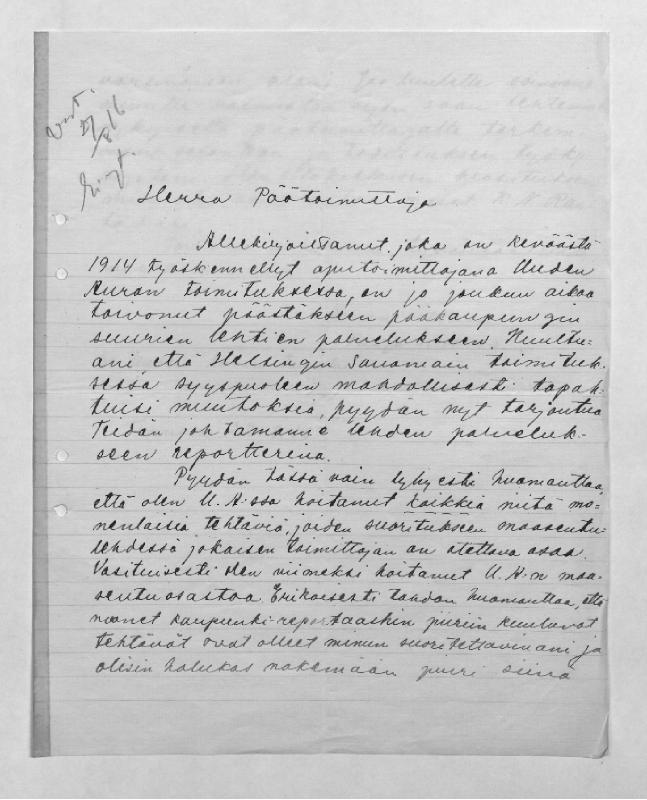 Vast.
27/8 16
Herra Päätoimittaja
Allekirjoittanut, joka on keväästä
1914 työskennellyt aputoimittajana Uuden
Auran toimituksessa, on jo jonkun aikaa
toivonut päästäkseen pääkaupungin
suurien lehtien palvelukseen. Kuultu-
ani, että Helsingin Sanomain toimituk-
sessa syyspuoleen mahdollisesti tapah-
tuisi muutoksia, pyydän nyt tarjoutua
Teidän johtamanne lehden palveluk-
seen reportterina.
Pyydän tässä vain lyhyesti huomauttaa,
että olen U. A:ssa hoitanut kaikkia niitä mo-
nenlaisia tehtäviä, joiden suoritukseen maaseutu-
lehdessä jokaisen toimittajan on otettava osaa.
Vasituisesti olen viimeksi hoitanut U. A:n maa-
seutuosastoa. Erikoisesti tahdon huomauttaa, että
monet kaupunki-reportaashin piiriin kuuluvat
tehtävät ovat olleet minun suoritettavinani ja
olisin halukas nakemään juuri siinä